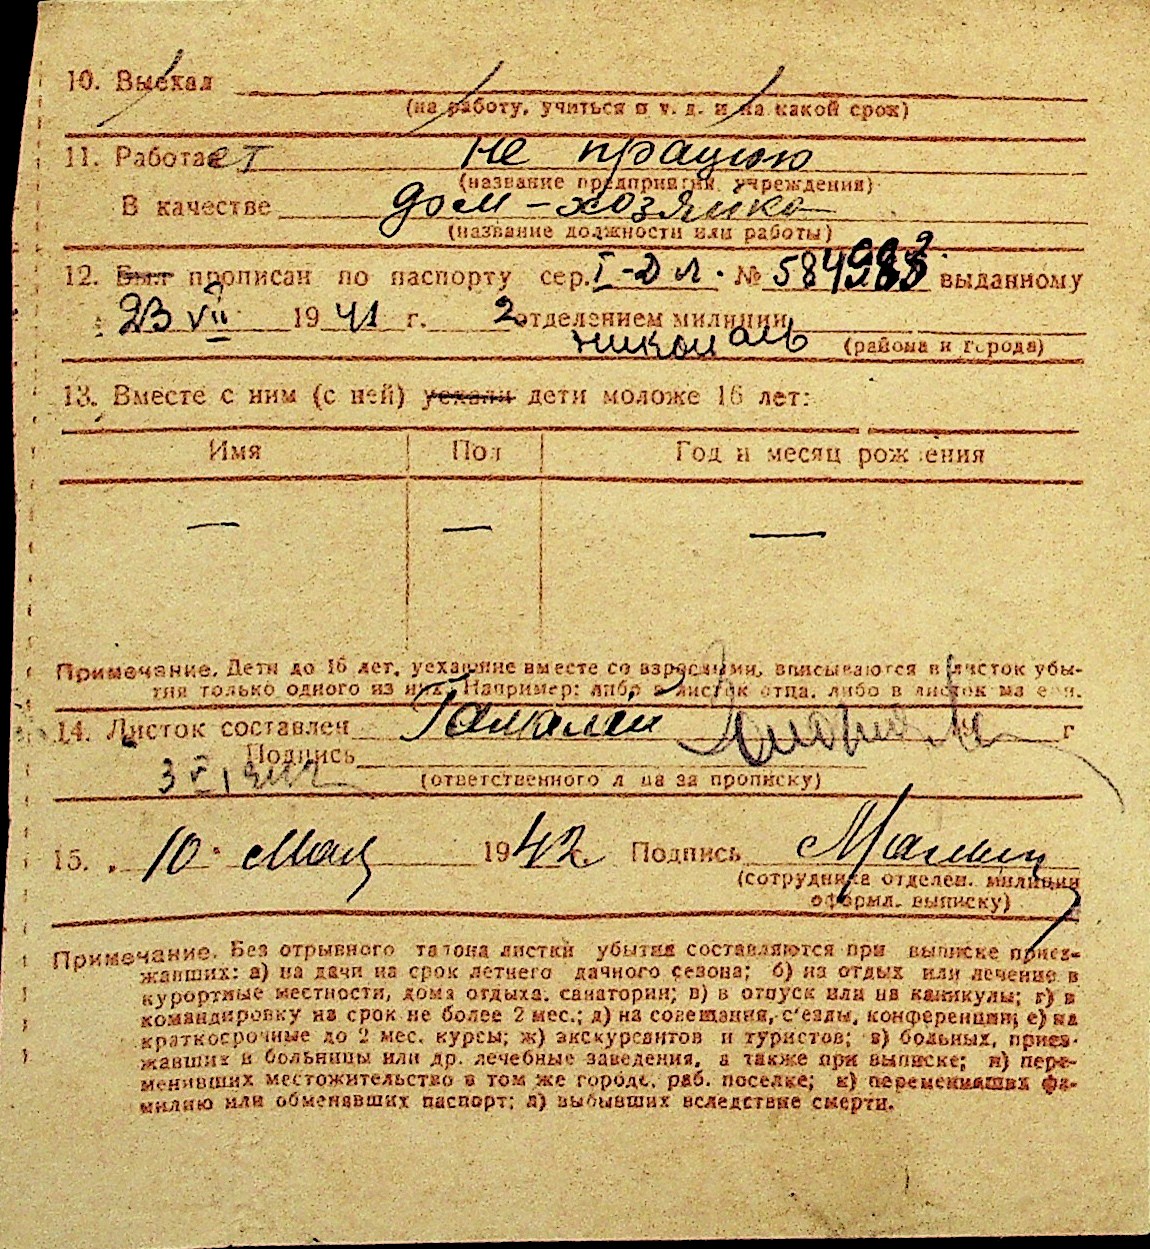 10. Выехал
(на работу, учиться и т. д. и на какой срок)
11. Работает не працюю
(название предприятия, учреждения)
В качестве дом-хозяйка
(название должности или работы)
12. Был прописан по паспорту сер. I-ДЛ. № 584983 выданному
23 VII 1941 г. 2 отделением милиции
никополь (района и города)
13. Вместе с ним (с ней) уехали дети моложе 16 лет:
Имя Пол Год и месяц рождения
— — —
Примечание. Дети до 16 лет, уехавшие вместе со взрослыми, вписываются в листок убы-
тия только одного из них. Например: либо в листок отца, либо в листок матери.
14. Листок составлен г
Подпись
(ответственного лица за прописку)
15. „ 10 " Мая 1942 г. Подпись
(сотрудника отделен. милиции
оформл. выписку)
Примечание. Без отрывного талона листки убытия составляются при выписке приез-
жавших: а) на дачи на срок летнего дачного сезона; б) на отдых или лечение в
курортные местности, дома отдыха, санатории; в) в отпуск или на каникулы; г) в
командировку на срок не более 2 мес.; д) на совещания, с'езды, конференции; е) на
краткосрочные до 2 мес. курсы; ж) экскурсантов и туристов; з) больных, приез-
жавших в больницы или др. лечебные заведения, а также при выписке; и) пере-
менивших местожительство в том же городе, раб. поселке; к) переменивших фа-
милию или обменявших паспорт; л) выбывших вследствие смерти.